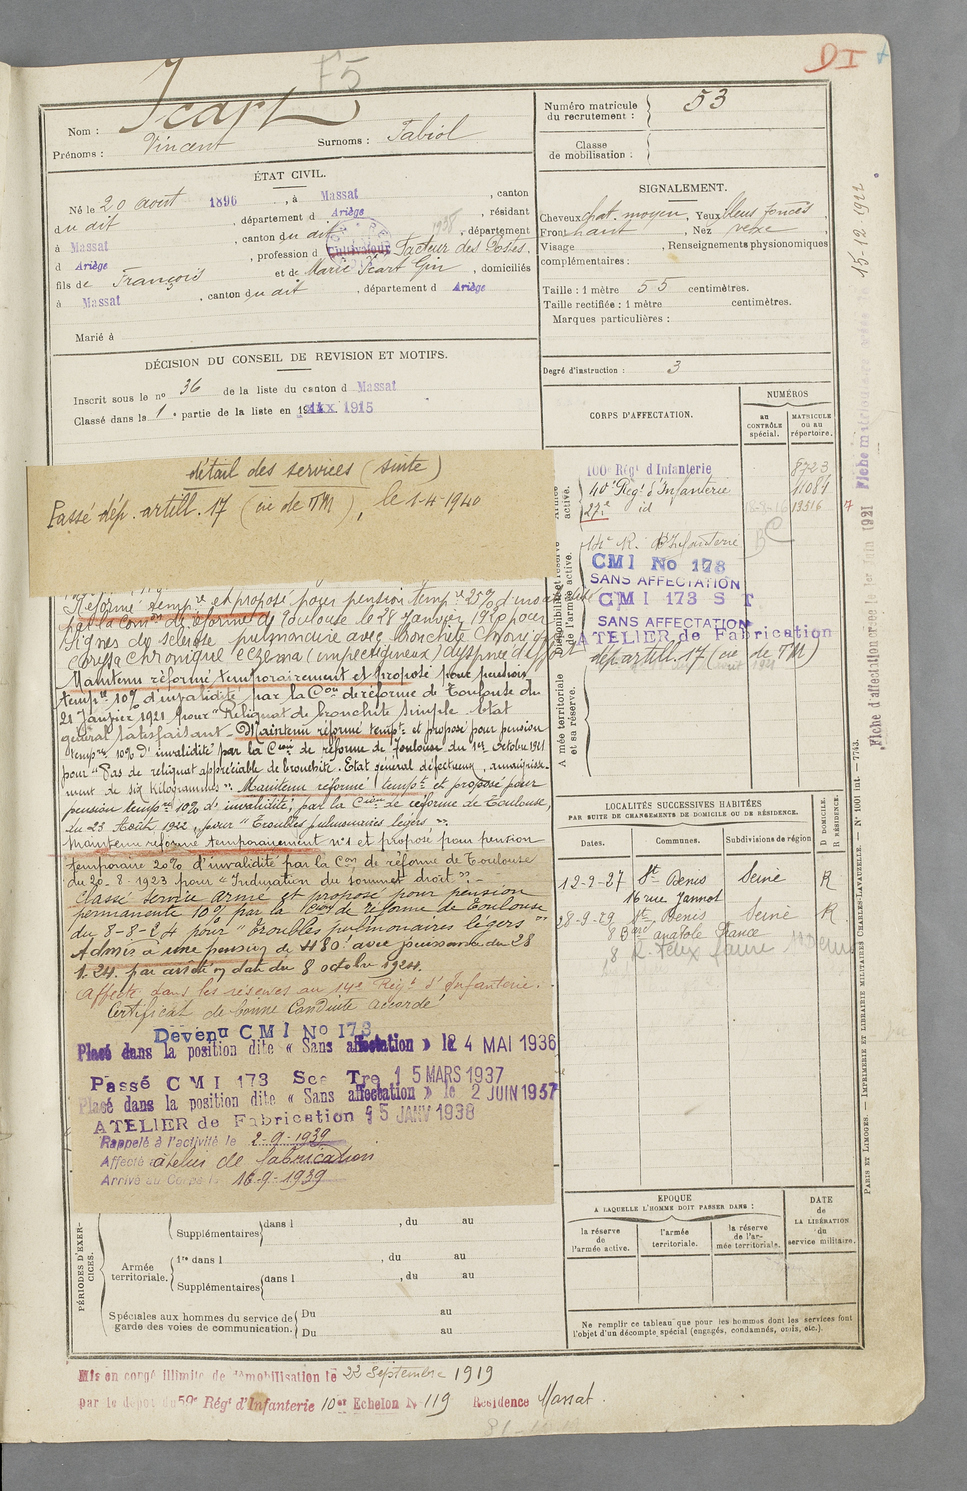 F5
DI
Nom : Icart
Prénoms : Vincent Surnoms : Fabiol
ÉTAT CIVIL.
Né le 20 août 1896, à Massat, canton
du dit, département d Ariège, résidant
à Massat, canton du dit 1938, département
d Ariège, profession d Cultivateur Facteur des Postes.
fils de François et de Marie Icart Gin, domiciliés
à Massat, canton du dit, département d Ariège
Marié à
DÉCISION DU CONSEIL DE REVISION ET MOTIFS.
Inscrit sous le no 36 de la liste du canton d Massat
Classé dans la 1e partie de la liste en 1915
détail des services (suite)
Passé dép. artill. 17 (ie de TM), le 1-4-1940
Réformé tempre et proposé pour pension tempre 25% d'invalidité
par la Comon de réforme de Toulouse le 28 janvier 1920 pour
signes de sclérose pulmonaire avec bronchite chronique
chronique eczéma (impétigineux) dyspnée d'effort
Maintenu réformé temporairement et proposé pour pension
tempre 10% d'invalidité par la Con de réforme de Toulouse du
21 Janvier 1921 pour "Reliquat de bronchite simple état
général satisfaisant - Maintenu réformé tempt et proposé pour pension
tempre 10% d'invalidité par la Con de réforme de Toulouse du 1er octobre 1921
pour "Pas de reliquat appréciable de bronchite. Etat général défectueux, amaigrisse-
ment de six Kilogrammes". Maintenu réformé tempt et proposé pour
pension tempre 10% d'invalidité, par la Con de réforme de Toulouse,
du 23 Août 1922, pour "Troubles pulmonaires légers".
Maintenu réformé temporairement no1 et proposé pour pension
temporaire 20% d'invalidité par la Con de réforme de Toulouse
du 20-8-1923 pour "Induration du sommet droit".
Classé service armé et proposé pour pension
permanente 10% par la Con de réforme de Toulouse
du 8-8-24 pour "troubles pulmonaires légers"
Admis à une pension de 480f avec jouissance du 28
1.24. par arrêté en date du 8 octobre 1924.
Affecté dans les réserves au 14e Régt d'Infanterie.
Certificat de bonne Conduite accordé
Devenu CMI No 173
Placé dans la position dite « Sans affectation » le 24 MAI 1936
Passé CMI 173 Sce Tre 15 MARS 1937
Placé dans la position dite « Sans affectation » le 2 JUIN 1937
ATELIER de Fabrication 25 JANV 1938
Rappelé à l'activité le 2-9-1939
Affecté atelier de fabrication
Arrivé au Corps le 16-9-1939
PÉRIODES D'EXERCICES.
Supplémentaires dans l , du au
Armée territoriale.
1re dans l , du au
Supplémentaires dans l , du au
Spéciales aux hommes du service de garde des voies de communication.
Du au
Du au
Mis en congé illimité de démobilisation le 22 Septembre 1919
par le dépôt du 59e Régt d'Infanterie 10er Echelon No 119 Résidence Massat.
Numéro matricule du recrutement : 53
Classe de mobilisation :
SIGNALEMENT.
Cheveux chat. moyen, Yeux bleus foncés,
Front haut, Nez vexe,
Visage , Renseignements physionomiques
complémentaires :
Taille : 1 mètre 55 centimètres.
Taille rectifiée : 1 mètre centimètres.
Marques particulières :
Degré d'instruction : 3
CORPS D'AFFECTATION.
NUMÉROS
au CONTRÔLE spécial.
MATRICULE ou au répertoire.
Armée active.
100e Régt d'Infanterie 8723
40e Régt d'Infanterie 11084
27e id 13516
Disponibilité et réserve de l'armée active.
14e R. d'Infanterie
CMI No 173
SANS AFFECTATION
CMI 173 S T
SANS AFFECTATION
ATELIER de Fabrication
dép. artill. 17 (ie de TM)
Armée territoriale et sa réserve.
LOCALITÉS SUCCESSIVES HABITÉES
PAR SUITE DE CHANGEMENTS DE DOMICILE OU DE RÉSIDENCE.
Dates. Communes. Subdivisions de région
D DOMICILE.
R RÉSIDENCE.
12-9-27 St Denis Seine R
16 rue Jannot
28-9-29 St Denis Seine R.
8 Bard anatole France
8 R. Felix Faure St Denis
EPOQUE
A LAQUELLE L'HOMME DOIT PASSER DANS :
la réserve de l'armée active.
l'armée territoriale.
la réserve de l'armée territoriale.
DATE de LA LIBÉRATION du service militaire.
Ne remplir ce tableau que pour les hommes dont les services font
l'objet d'un décompte spécial (engagés, condamnés, omis, etc.).
15-12-1922
Fiche d'affectation créée le 1er Juin 1921
PARIS ET LIMOGES. — IMPRIMERIE ET LIBRAIRIE MILITAIRES CHARLES-LAVAUZELLE. — No 1001 Int. — 7743.